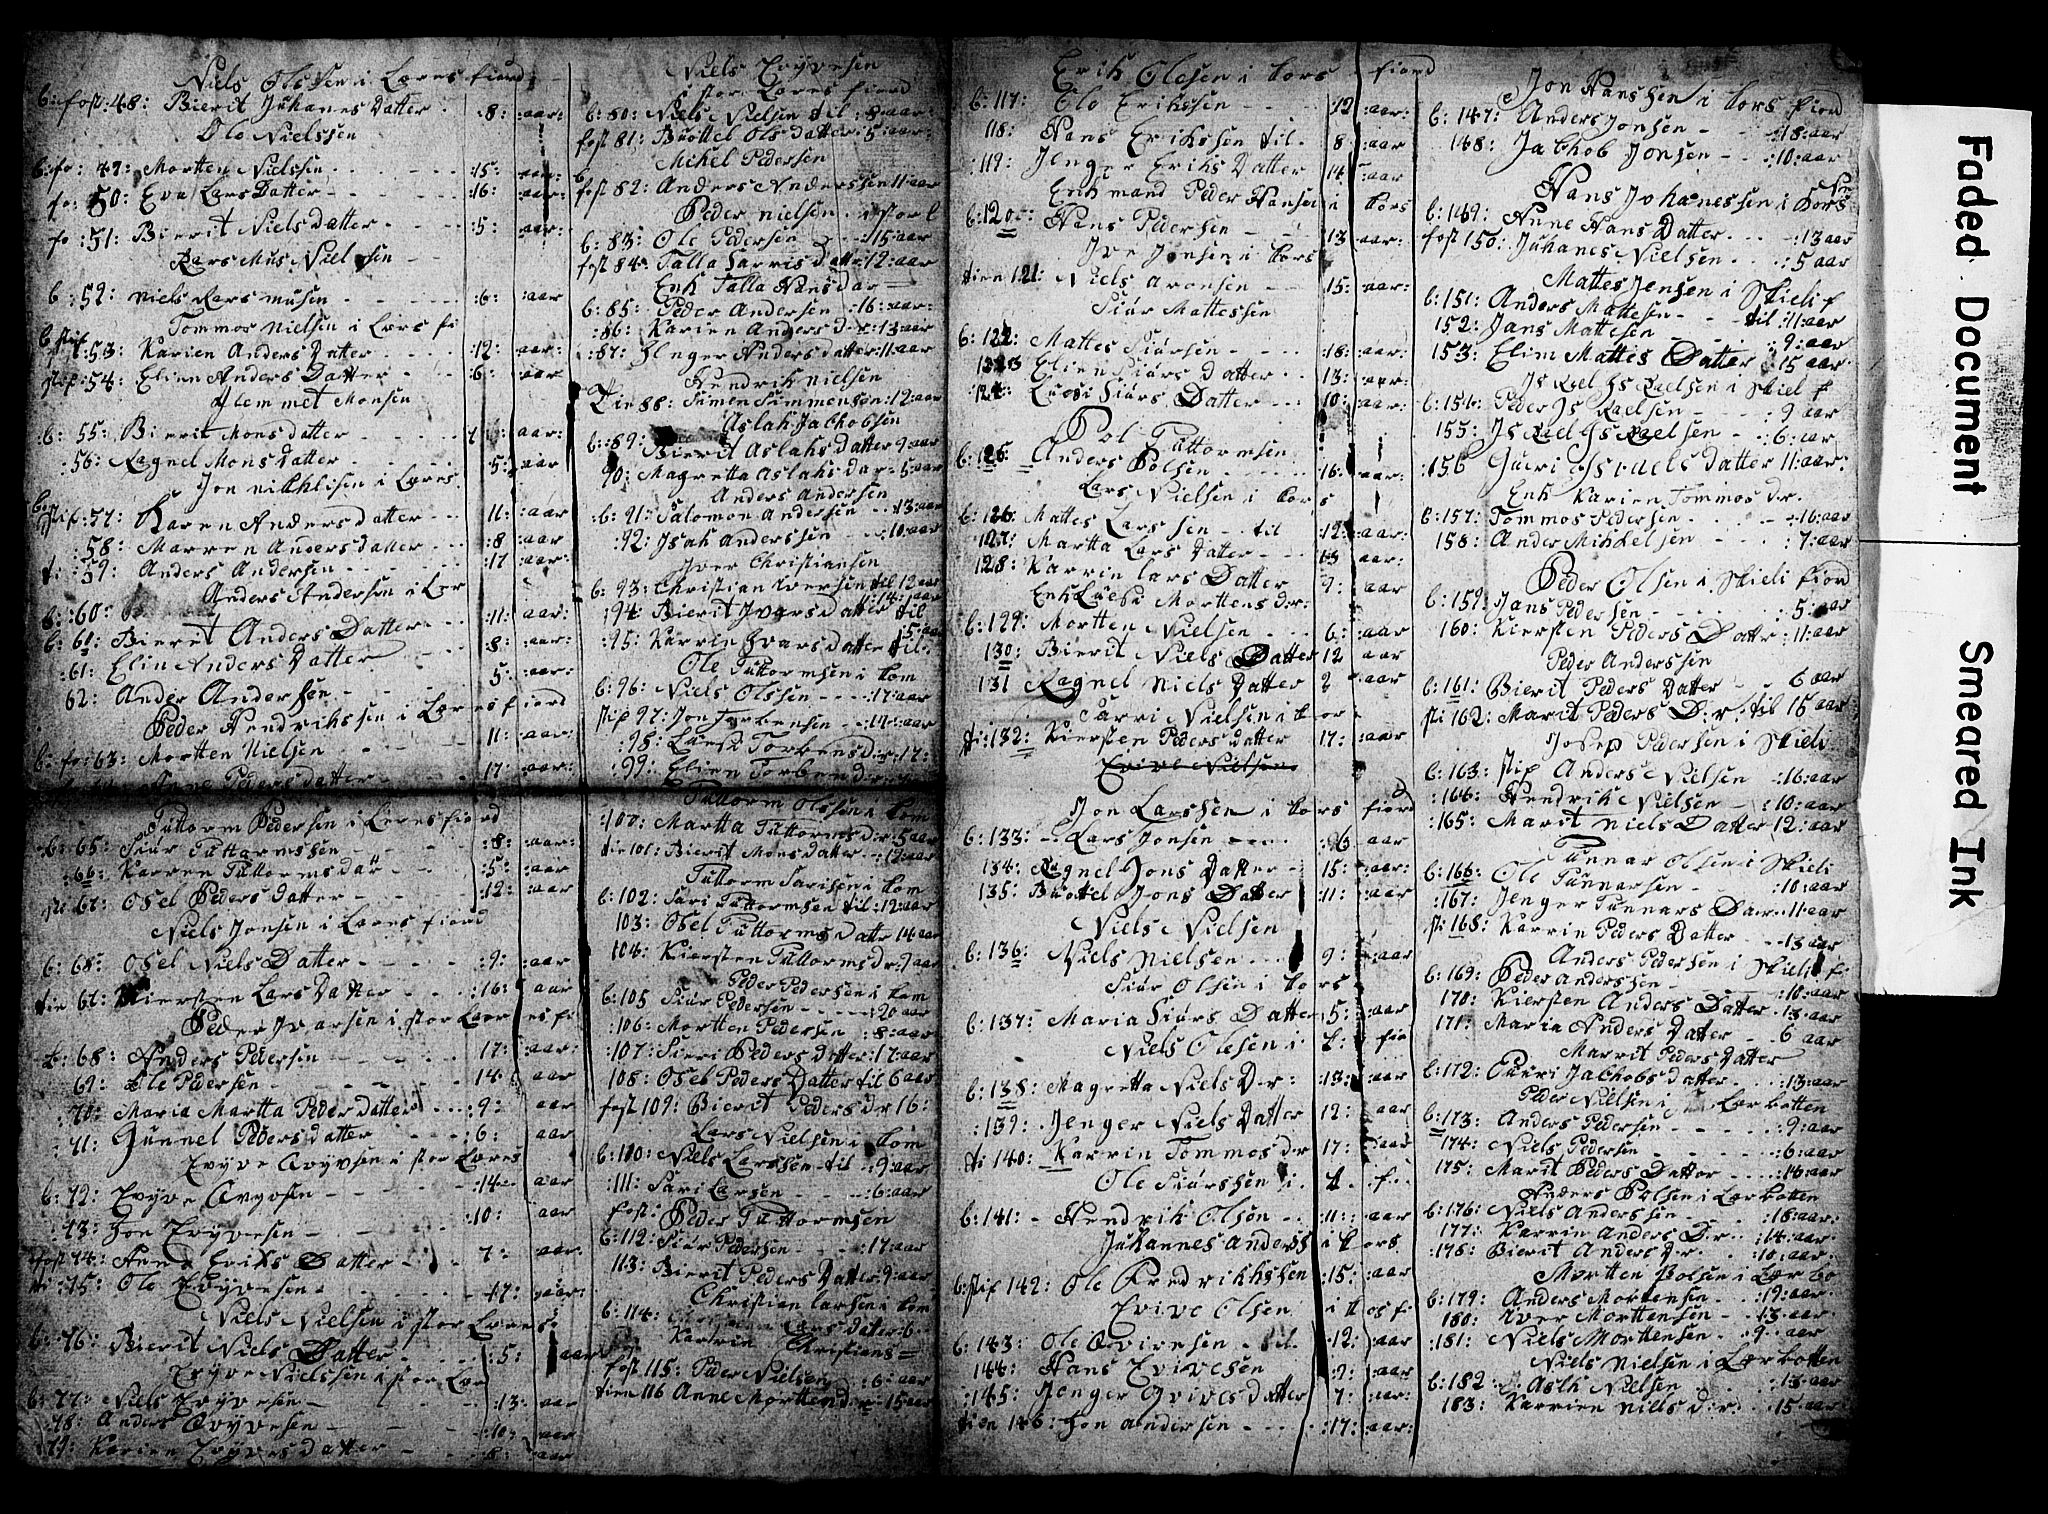 Niels Olssen i Leresfiord
b: fost: 48: Bierit Juhanes Datter :8: :aar:
Ole Nielssen
b: fo: 47: Mortten Nielssen :15: :aar:
fo: 50: Eva Lars Datter :16: :aar:
fo :51: Bierit Niels datter :5: :aar:
Rars Mus Nielssen
b :52: niels Rars musen :6: :aar
Tommos nielsen i Leres fi
b stif :53: Karien Anders Datter :12: :aar:
stif :54: Elien Anders Datter :6: :aar
Klemmet Monsen
b: 55: Bierit Mons datter 7: :aar:
:56: Ragnel Mons Datter :5: :aar
Jon nikklisen i Leres
b: stif :57: Karen Anders datter 11: :aar
:58: Marren Anders datter :8 :aar
ti :59: Anders Andersen :17 :aar:
Anders Andersen i Ler
b: :60: :11: :aar:
b: 61: Bieret Anders Datter :8: :aar:
:61: Elin Anders Datter 5: :aar:
62: Ander Andersen
Peder Hendrikssen i Leresfiord
b: fo: 63: Mortten Nielsen 11: :aar
Anne Peders datter 17: :aar:
Tuttorm Pedersen i Leresfiord
b: 65: Siur Tuttormssen :8: :aar:
:66: Karren Tuttorms dar :5: :aar
sti 67: Osel Peders Datter :12: :aar
Niels Jonsen i Leres fiord
b: 68: Osel Niels Datter :9: :aar
tie 67: Kiersten Lars Datter :16: :aar
Peder Ivarsen i stor Leres fi
b: 68: Anders Pedersen 17: :aar:
69: Ole Pedersen 14 :aar
:70: Maria Martta Peder datter :9: aar
:71: Gunnel Peders datter :6: aar
Evyve Evyvsen i stor Leres
b: 72: Evyve Evyvsen :14 aar
:73: Jon Evyvesen :10: aar
fost 74: Anne Eriks Datter 7: :aar:
ti :75: Ole Evyvesen 17: :aar:
Niels Nielsen i stor Leres:
b: :76: Bierit Niels Datter :5: aar
Evyve Nielssen i stor Ler
b: 77: Niels Evyvesen :13: aar
:78: Anders Evyvesen :10: aar
:79: Karien Evyves datter :8: aar
Niels Evyvesen
i stor Leresfiord
b: 80: Niels Nielsen til :8: aar:
fost 81: Buottel Ols datter: 5: aar:
Mikel Pedersen
b fost 82: Anders Anderssen 11: aar
Peder nielsen i stor L
b: 83: Ole Pedersen :15: aar
fost 84: Talla Sarris datr: 12: aar
Enk Talla Hans dar
b: 85: Peder Andersen :16: aar:
:86: Karien Anders d:r: 13 aar
:87: Jenger Anders datter: 11: aar
Hendrik nielsen
tie 88: Simen Simmensen: 12: aar
Aslak Jackobsen
b: :89: Bierit Aslaks datter 9: aar
90: Magretta Aslaks dar: 5: aar
Anders Andersen
:b: 91: Salomon Andersen :13: aar
:92: Isak Anderssen :10: aar
Iver Christiansen
b: 93: Christian Iversen til 12 aar
:94: Bierit Ivars datter til :14: aar
:95: Karrin Ivars datter til :5: aar
Ole Tuttormsen i kom
b: 96: Niels Olssen :17: aar
stif 97: Jon Torbensen :14: aar:
:98: Luesi Torbensd:r: 17:
:99: Elien Torben d:r:
Tuttorm Olssen i kom
:107: Martta Tuttorms d:r 5 aar
tie 101: Bierit Mons datter :12: aar
Tuttorm Sarisen i kom
b: 102: Sari Tuttormsen til :12: aar
103: Osel Tuttorms datr 14 aar
104: Kiersten Tuttorms d:r: 9 aar
Peder Pedersen i kom
b: 105 Siur Pedersen 20 aar
:106: Mortten Pedersen :8: aar
:107: Sieri Peders datter: 17: aar
108: Osel Peders Datter til 6 aar
fost 109: Bierit Peders d:r 16:
Lars Nielsen i kom
b: 110: Niels Larssen til :9: aar
:111: Sari Larsen :6: aar
fost:
Peder Tuttormsen
b: 112: Siur Pedersen :17: aar
113: Bierit Peders Datter 9: aar
Christian larsen i kom
b: 114: Lars dater: 6
Karrin Christians=
fost 115: Peder Nielsen :6: aar
tien 116 Anne Mortten d:r 15 aar
Erik Olesen i kors - fiord
b: 117: Olo Erikssen :12 :aar
118: Hans Erikssen til 8 :aar
:119: Jenger Eriks Datter 14: :aar
Enk mand Peder Hansen i kors
b: 120: Hans Pedersen :13 :aar:
Ive Jonsen i kors
tien 121: Niels aronsen :15: :aar:
Siur Mattessen
b: 122: Mattes Siursen :18: :aar:
:123 Elien Siurs datter 13: :aar:
:124: Luesi Siurs Datter :10: :aar:
Pol Tuttormsen
b: 125: Anders Polsen :16: :aar:
Lars Nielsen i kors
b: 126: Mattes Larssen til :12: :aar
:127: Martta Lars Datter 13 :aar:
128: Karrin lars Datter 9: :aar
Enk Luesi Mortens d:r:
b: 129: Mortten Nielsen 6: :aar
130: Bierit Niels Datter 12 aar
131 Ragnel Niels Datter 2 :aar
Sarri Nielsen i kors
ti: 132: Kiersten Peders datter 17: :aar
Evive Nielsen
Jon Larssen i kors fiord
b: 133: Lars Jonsen :6 aar
134: Ragnel Jons Datter 15: :aar
135: Buottel Jons Datter :11: :aar
Niels Nielsen
b: 136: Niels Nielsen 9: :aar
Siur Olsen i kors
b: 137: Maria Siurs Datter 5: :aar
Niels Olesen i k fio
b: 138: Magretta Niels D:r: :13: :aar
:139: Jenger Niels Datter 12: aar
ti 140: Karrin Tommos d:r :17: aar
Ole Siurssen i k. f:
b: 141: Hendrik Olsen :11: :aar
Juhannes anders i kors
b: stif 142: Ole Fredrikhssen :15: :aar
Evive Olsen i kors f:
b: 143: Ole Evivesen til :12: :aar
144: Hans Evivesen :9: :aar
:145: Jenger Evives datter 7: :aar:
tien 146: Jon andersen :17: :aar
Jon Hanssen i kors fiord
b: 147: Anders Jonsen :18: aar
148: Jackob Jonsen :10: aar
Hans Johanessen i kors
b: 149: Anne Hans Datter :13 aar
fost 150: Juhanes Nielsen :5 aar
Mattes Jensen i Skieli f
b: 151: Anders Mattesen til :11: aar
152: Jans Mattesen :9: aar
153: Elien Mattes Datter 15 aar
Is Rael Is Raelsen i Skiel f
b: 154: Peder Is Raelsen :9 aar
155: Is Rael Is Raelsen :6: aar
:156 Gueri Israels datter 11: aar:
Enk Karien Tommos d:r.
b: 157: Tommos Pedersen :16: aar
158: Ander Mikkelsen :7: aar
Peder Olsen i Skieli fiord
b: 159: Jans Pedersen :5: aar
160: Kiersten Peders Datter :11: aar
Peder Anderssen
b: 161: Bierit Peders Datter 6 aar
sti 162: Marit Peders D:r: til 15 aar
Josep Pedersen i Skieli
b: 163: stif Anders Nielsen :16: aar
:164: Hendrik Nielsen :10: aar
:165: Marit Niels Datter 12: aar
Gunnar Olsen i Skieli
b: 166: Ole Gunnarsen :10: aar
:167: Jenger Gunnars Dar :11: aar
sti 168: Karrin Peders Datter :13 aar
Anders Pedersen i Skieli f:
b: 169: Peder Anderssen :18: aar
170: Kiersten Anders Datter :13: aar
171: Maria Anders Datter 6 aar
Marrit Peders Datter
b: 172: Guri Jackobs datter :13: aar
Peder Nielsen i Lerbotten
b: 173: Anders Pedersen :9: aar
174: Niels Pedersen :6: aar
175: Marit Peders Dattor :16: aar
Anders Polsen i Lerbotten
b: 176: Niels Anderssen :18: aar
177: Karrin Anders D:r: :14: aar
:178: Bierit Anders D:r: :10: aar:
Mortten Polsen i Ler bo
b: 179: Anders Mortensen :19: aar:
180: Iver Morttensen :13: aar
:181: Niels Morttensen :9: aar
Niels nielsen i Lerbotten
b: 182 Aslk Nielsen :13: aar
183: Karrien niels d:r: :15: aar
Faded Document Smeared Ink